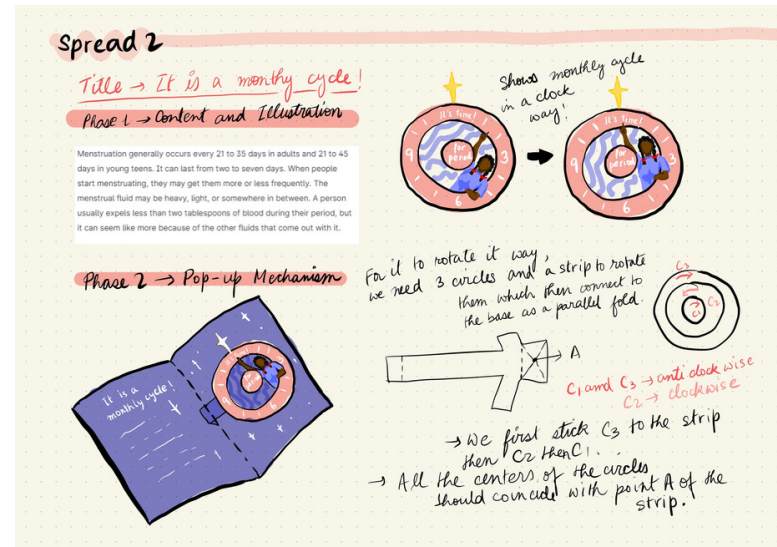 Spread 2
Title → It is a monthy cycle!
Phase 1 → Content and Illustration
Menstruation generally occurs every 21 to 35 days in adults and 21 to 45
days in young teens. It can last from two to seven days. When people
start menstruating, they may get them more or less frequently. The
menstrual fluid may be heavy, light, or somewhere in between. A person
usually expels less than two tablespoons of blood during their period, but
it can seem like more because of the other fluids that come out with it.
Shows monthly cycle
in a clock
way!
It's time!
for
period
9
3
6
It's time!
for
period
9
3
6
Phase 2 → Pop-up Mechanism
For it to rotate it way,
we need 3 circles and a strip to rotate
them which then connect to
the base as a parallel fold.
It is a
monthly cycle!
9
C3
C2
C1
A
C1 and C3 → anti clockwise
C2 → clockwise
→ We first stick C3 to the strip
then C2 then C1...
→ All the centers of the circles
should coincide with point A of the
strip.